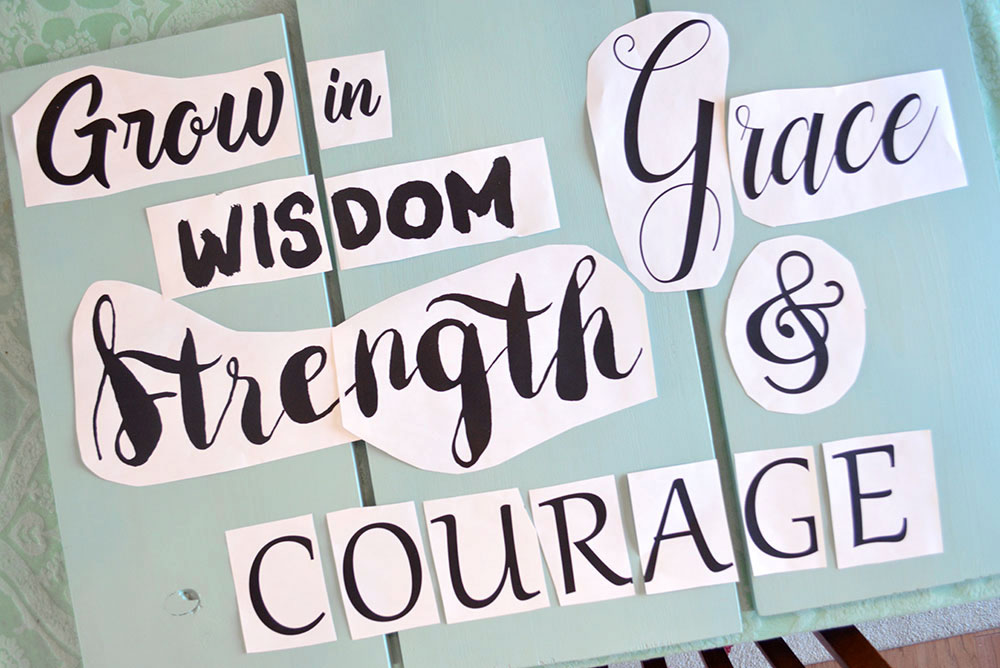 Grow in Grace
WISDOM
Strength &
COURAGE